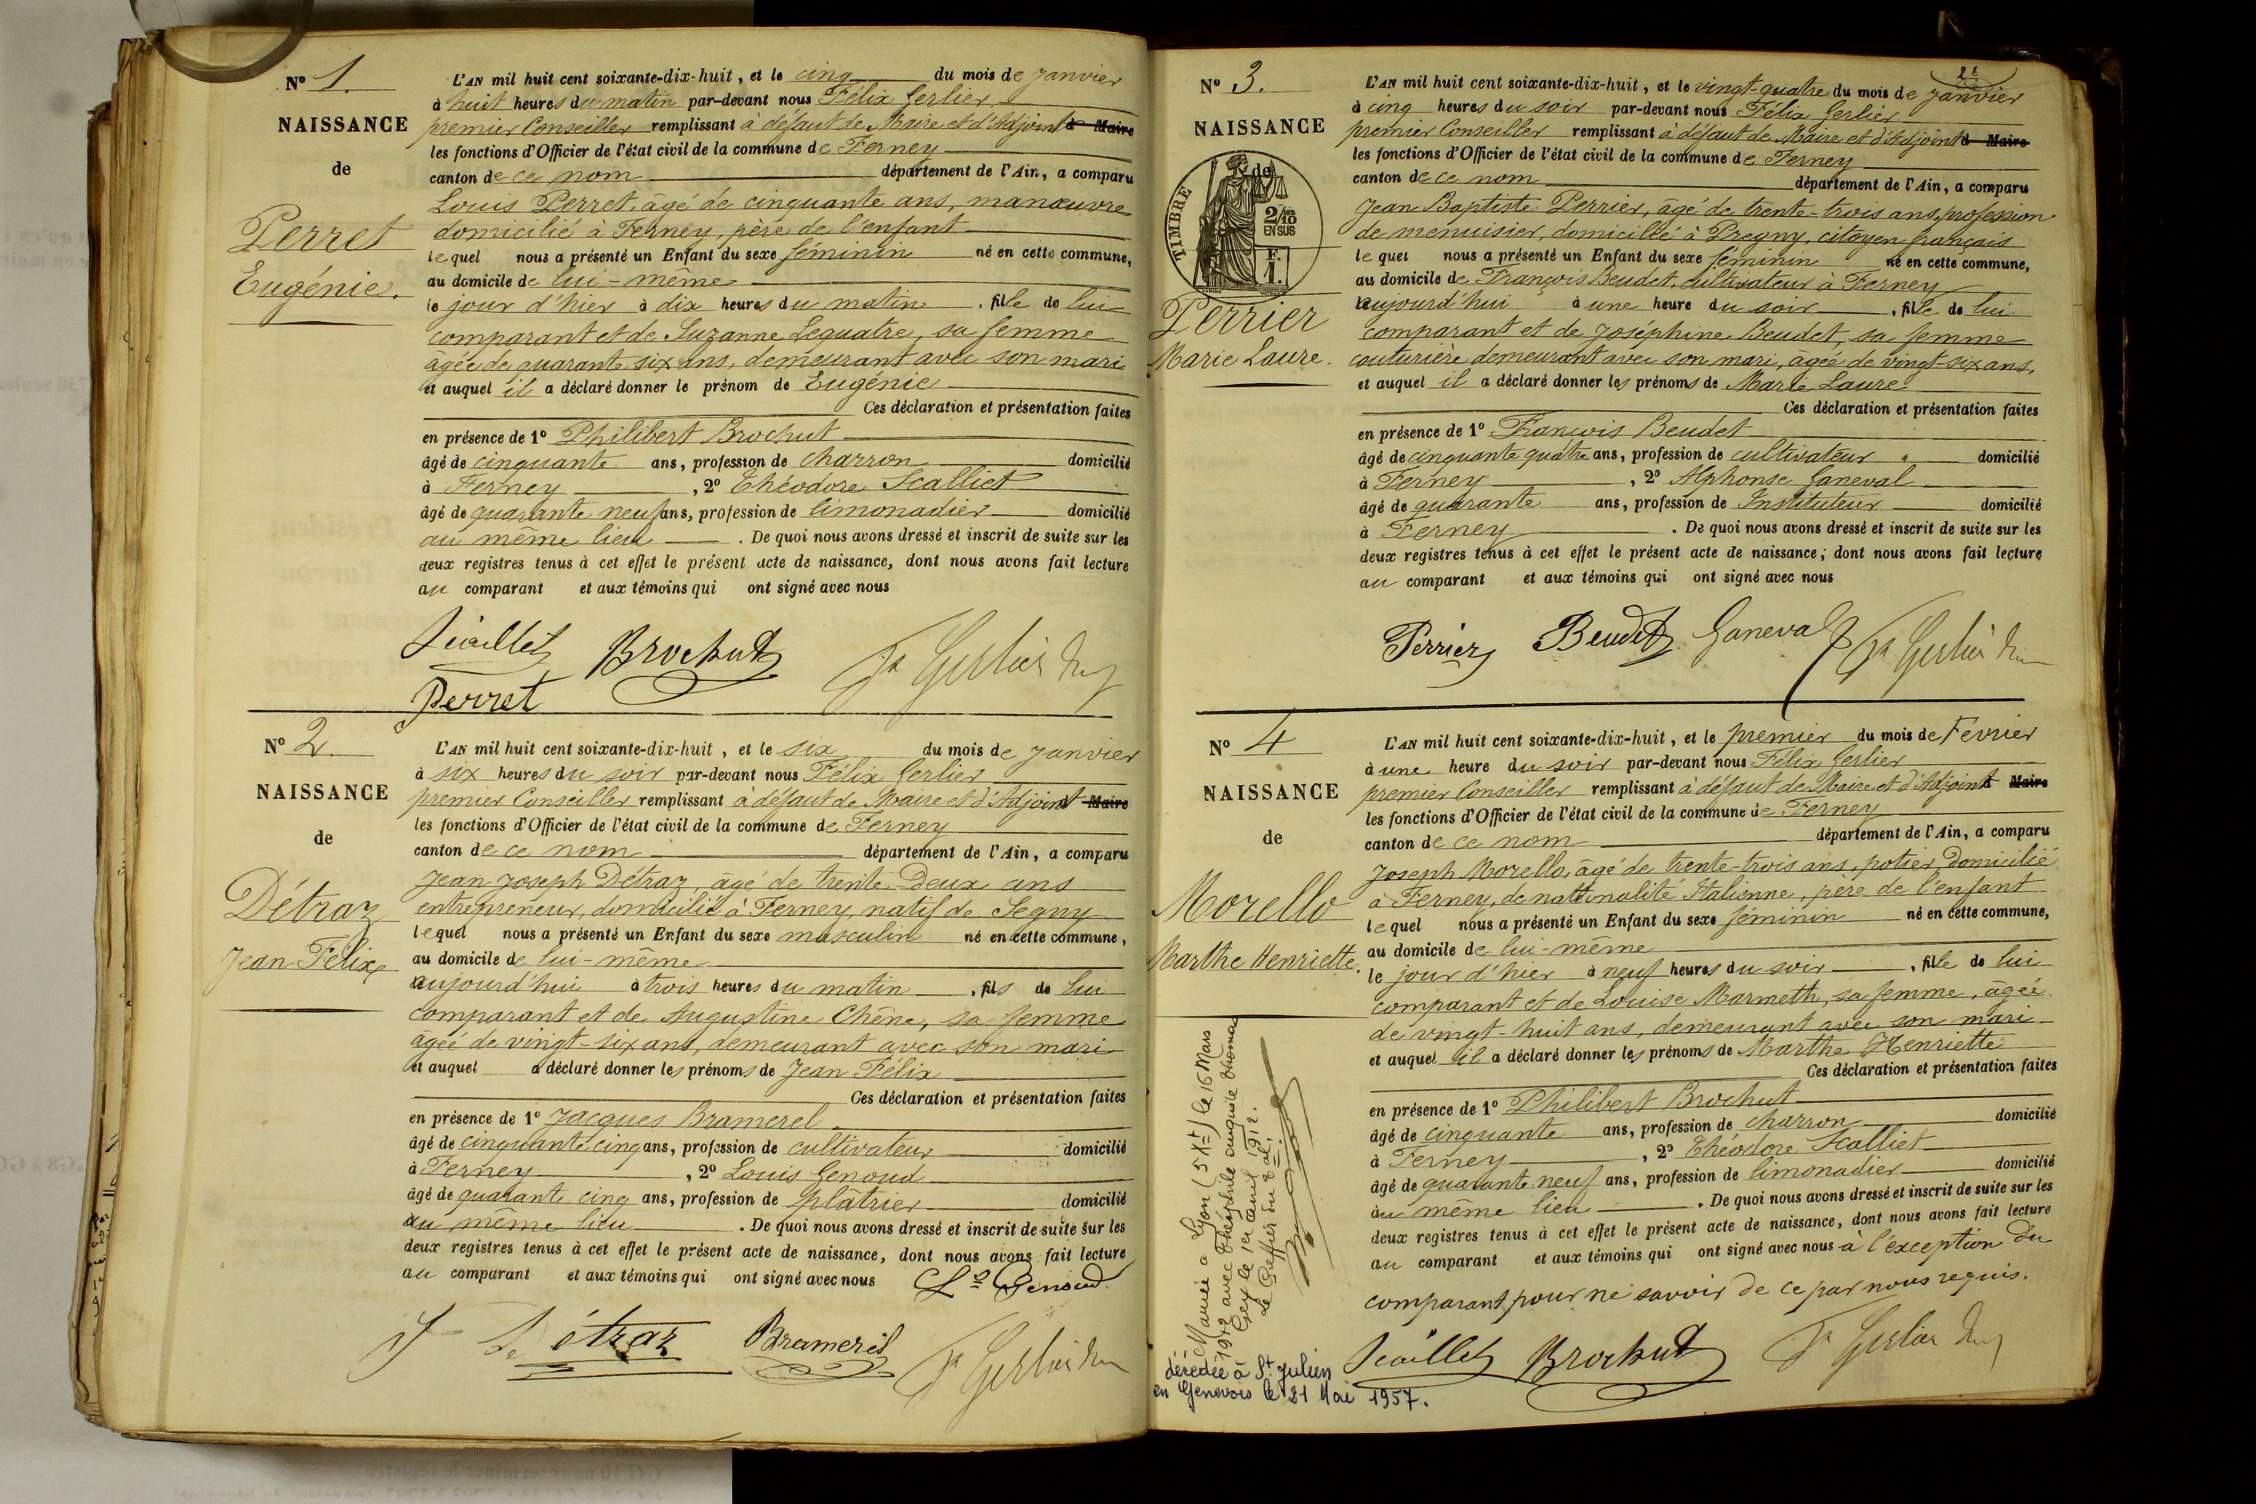 N° 1.
NAISSANCE
de
Perret
Eugénie.
L'AN mil huit cent soixante-dix-huit, et le cinq du mois de Janvier
à huit heures du matin par-devant nous Félix Gerlier
premier Conseiller remplissant à défaut de Maire et d'Adjoint à Maire
les fonctions d'Officier de l'état civil de la commune de Ferney
canton de ce nom département de l'Ain, a comparu
Louis Perret, âgé de cinquante ans, manœuvre
domicilié à Ferney, père de l'enfant
lequel nous a présenté un Enfant du sexe féminin né en cette commune,
au domicile de lui-même
le jour d'hier à dix heures du matin, fille de lui
comparant et de Suzanne Lequatre, sa femme
âgée de quarante six ans, demeurant avec son mari
et auquel il a déclaré donner le prénom de Eugénie
Ces déclaration et présentation faites
en présence de 1° Philibert Brochut
âgé de cinquante ans, profession de charron domicilié
à Ferney, 2° Théodore Scalliet
âgé de quarante neuf ans, profession de limonadier domicilié
au même lieu. De quoi nous avons dressé et inscrit de suite sur les
deux registres tenus à cet effet le présent acte de naissance, dont nous avons fait lecture
au comparant et aux témoins qui ont signé avec nous
Brochut
Perret
N° 2.
NAISSANCE
de
Détraz
Jean Félix
L'AN mil huit cent soixante-dix-huit, et le six du mois de Janvier
à six heures du soir par-devant nous Félix Gerlier
premier Conseiller remplissant à défaut de Maire et d'Adjoint Maire
les fonctions d'Officier de l'état civil de la commune de Ferney
canton de ce nom département de l'Ain, a comparu
Jean Joseph Détraz, âgé de trente-Deux ans
entrepreneur, domicilié à Ferney, natif de Segny
lequel nous a présenté un Enfant du sexe masculin né en cette commune,
au domicile de lui-même
aujourd'hui à trois heures du matin, fils de lui
comparant et de Augustine Chêne, sa femme
âgée de vingt-six ans, demeurant avec son mari
et auquel a déclaré donner les prénoms de Jean Félix
Ces déclaration et présentation faites
en présence de 1° Jacques Bramerel
âgé de cinquante cinq ans, profession de cultivateur domicilié
à Ferney, 2° Louis Genoud
âgé de quarante cinq ans, profession de plâtrier domicilié
au même lieu. De quoi nous avons dressé et inscrit de suite sur les
deux registres tenus à cet effet le présent acte de naissance, dont nous avons fait lecture
au comparant et aux témoins qui ont signé avec nous Ls Genoud
Détraz Bramerel
N° 3.
NAISSANCE
de
TIMBRE
2/10
EN SUS
Perrier
Marie Laure.
L'AN mil huit cent soixante-dix-huit, et le vingt-quatre du mois de Janvier
à cinq heures du soir par-devant nous Félix Gerlier
premier Conseiller remplissant à défaut de Maire et d'Adjoint à Maire
les fonctions d'Officier de l'état civil de la commune de Ferney
canton de ce nom département de l'Ain, a comparu
Jean Baptiste Perrier, âgé de trente-trois ans, profession
de menuisier, domicilié à Pregny, citoyen français
lequel nous a présenté un Enfant du sexe féminin né en cette commune,
au domicile de François Beudet, cultivateur à Ferney
aujourd'hui à une heure du soir, fille de lui
comparant et de Joséphine Beudet, sa femme
couturière demeurant avec son mari, âgée de vingt-six ans,
et auquel il a déclaré donner les prénoms de Marie Laure
Ces déclaration et présentation faites
en présence de 1° François Beudet
âgé de cinquante quatre ans, profession de cultivateur domicilié
à Ferney, 2° Alphonse Ganeval
âgé de quarante ans, profession de Instituteur domicilié
à Ferney. De quoi nous avons dressé et inscrit de suite sur les
deux registres tenus à cet effet le présent acte de naissance; dont nous avons fait lecture
au comparant et aux témoins qui ont signé avec nous
Perrier Beudet Ganeval
N° 4
NAISSANCE
de
Morello
Marthe Henriette.
L'AN mil huit cent soixante-dix-huit, et le premier du mois de Février
à une heure du soir par-devant nous Félix Gerlier
premier Conseiller remplissant à défaut de Maire et d'Adjoint à Maire
les fonctions d'Officier de l'état civil de la commune de Ferney
canton de ce nom département de l'Ain, a comparu
Joseph Morello, âgé de trente-trois ans, potier Domicilié
à Ferney, de nationalité Italienne, père de l'enfant
lequel nous a présenté un Enfant du sexe féminin né en cette commune,
au domicile de lui-même
le jour d'hier à neuf heures du soir, fille de lui
comparant et de Louise Marmeth, sa femme, âgée
de vingt-huit ans, demeurant avec son mari
et auquel il a déclaré donner les prénoms de Marthe Henriette
Ces déclaration et présentation faites
en présence de 1° Philibert Brochut
âgé de cinquante ans, profession de charron domicilié
à Ferney, 2° Théodore Scalliet
âgé de quarante neuf ans, profession de limonadier domicilié
au même lieu. De quoi nous avons dressé et inscrit de suite sur les
deux registres tenus à cet effet le présent acte de naissance, dont nous avons fait lecture
au comparant et aux témoins qui ont signé avec nous à l'exception du
comparant pour ne savoir de ce par nous requis.
Brochut
Mariée à Lyon (5e Xt) le 16 Mars
1912 avec Théophile Auguste Thomas
Gex le 1er avril 1912.
Le Greffier du Tal,
décédée à St Julien
en Genevois le 21 Mai 1957.